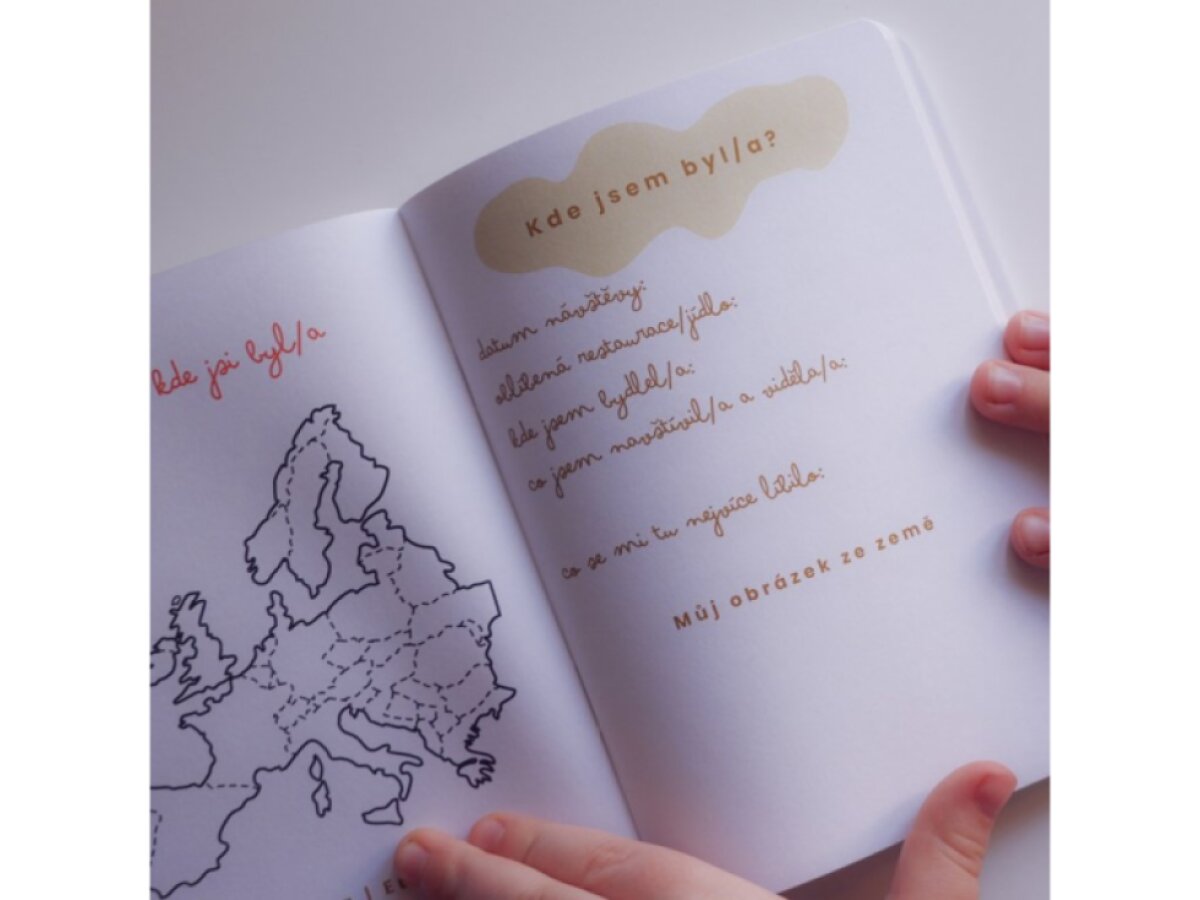 kde jsi byl/a
Kde jsem byl/a?
datum návštěvy:
oblíbená restaurace/jídlo:
kde jsem bydlel/a:
co jsem navštívil/a a viděla/a:
co se mi tu nejvíce líbilo:
Můj obrázek ze země